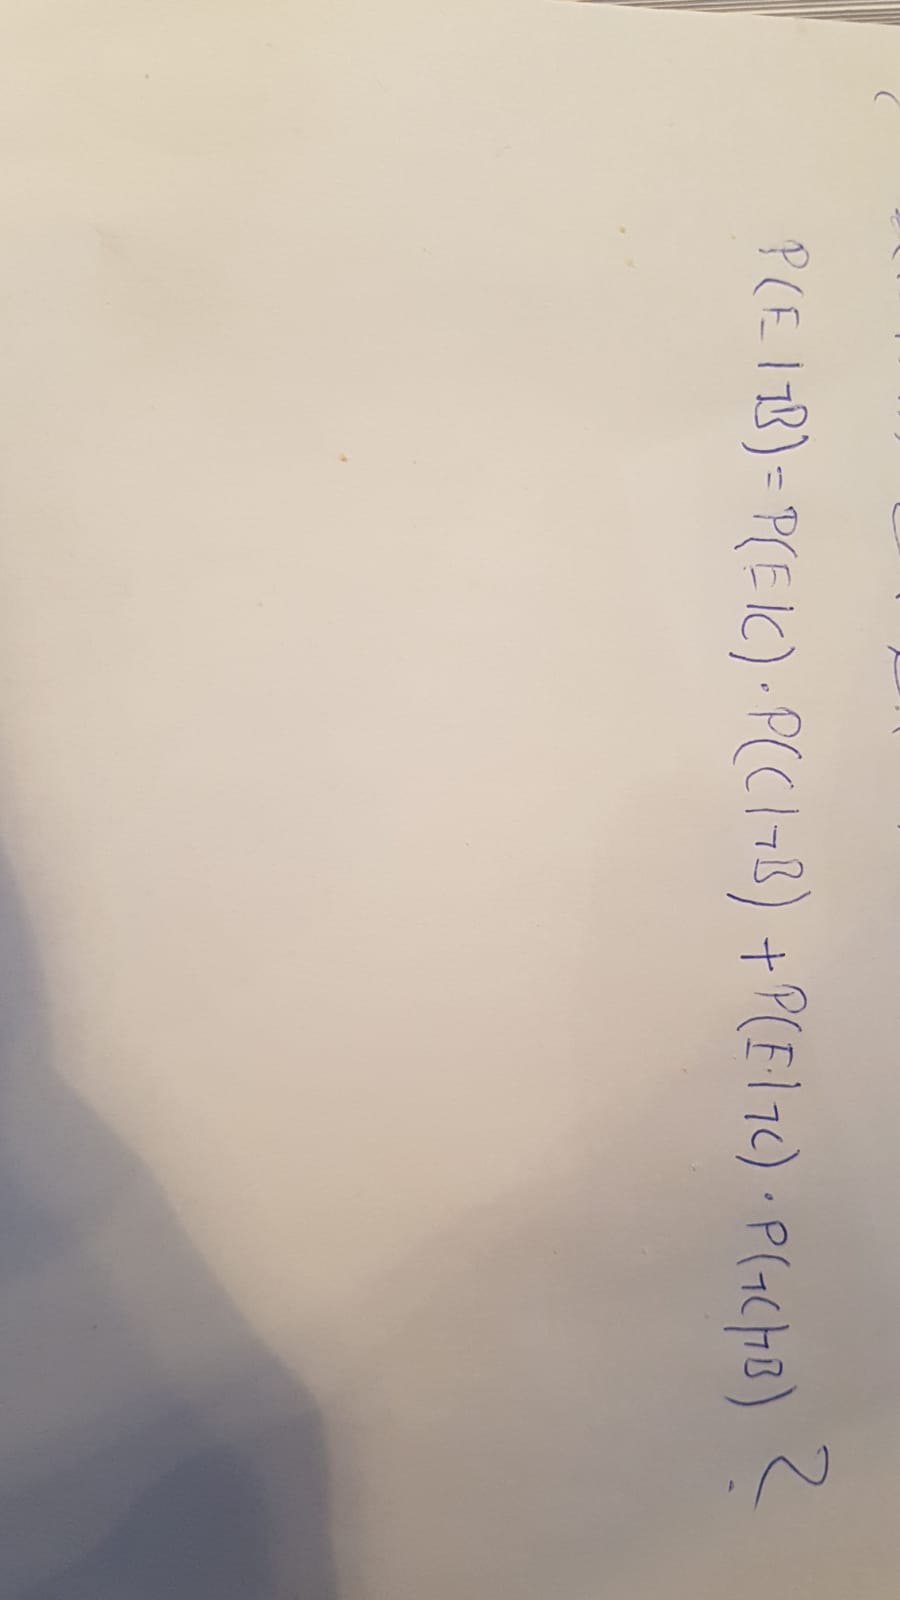 P(E|¬B)=P(E|C)·P(C|¬B)+P(E|¬C)·P(¬C|¬B) ?